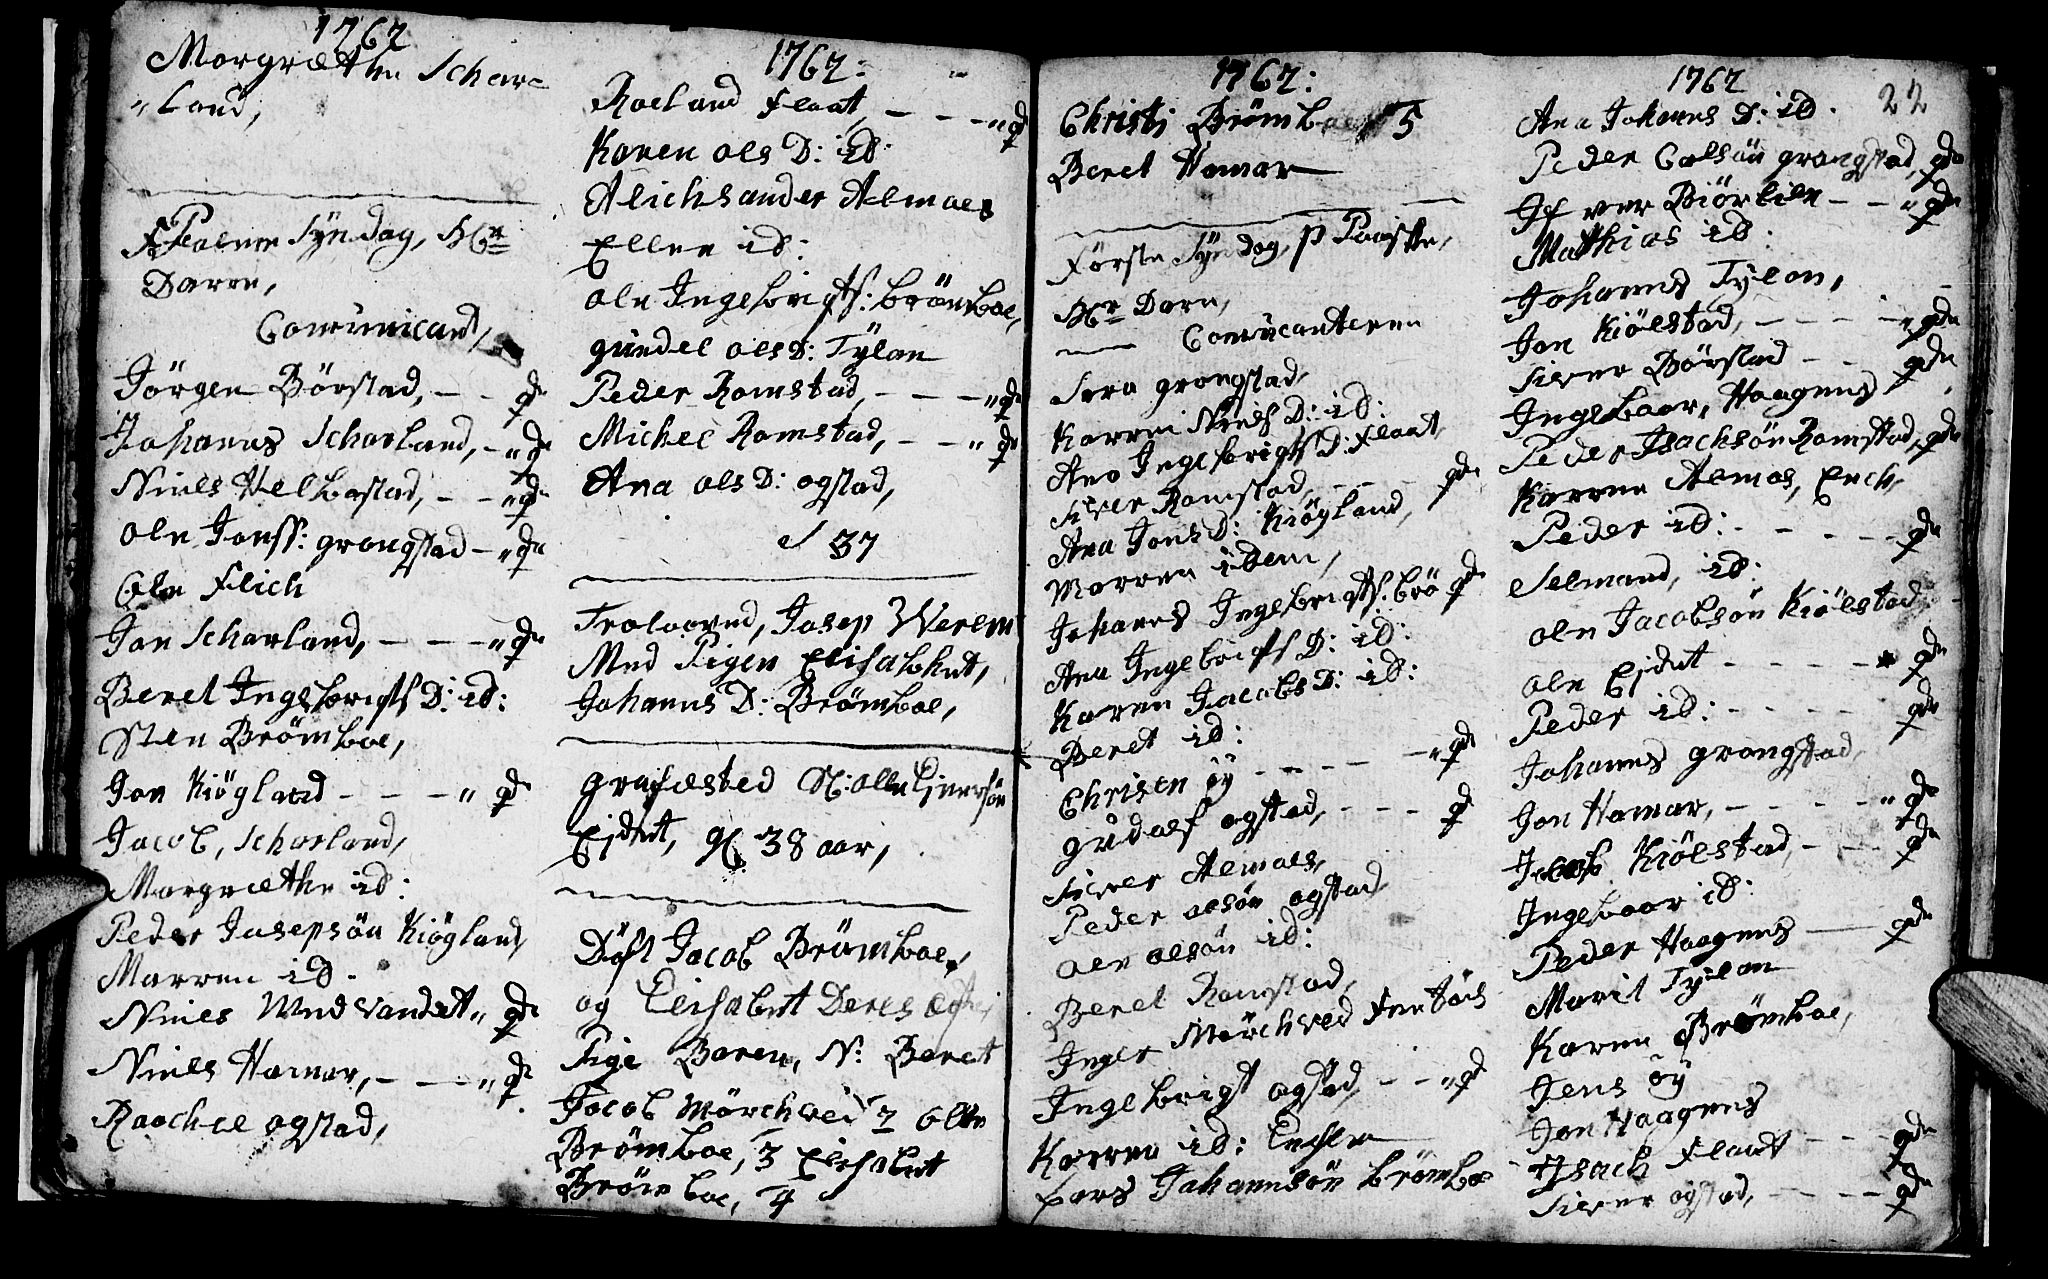 1762
Morgrethe Schar=
"Land,
Palme Syndag, Hr
Darre,
Comunicant,
Jörgen Börstad, - - qdn
Johanns Scharland, - " qdn
Niels Helbostad, - - " qdn
Ole Jonss: grongstad - " qdn
Ole Flich
Jon Scharland, - - - " qdn
Beret Ingebrigts D: id:
Sten Brömboe,
Jon Kiögland - - - " qdn
Jacob, Scharland,
Morgrethe id:
Peder Josepsön Kiögland,
Marren id.
Niels Wedvandet " qdn
Niels Hamar, - - - " qdn
Raachel ogstad,
1762:
Roeland Flaat, - - - " qd
Karen ols D: id:
Alichsander Almaes
Ellen id:
Ole Ingebrigts: brömboe,
gundel ols D: Tylan
Peder Romstad, - - - " qd
Michel Romstad, - - " qd
Ana ols D: ogstad,
S 37
Troloved, Josep Werem
Med Pigen Elisabeht,
Johanns D: Brömboe,
grafæsted S: Olle Ejversön
Ejdet, gl 38 aar,
Döft Jacob Brömboe,
og Elisabet Deres
Pige Baren, N: Beret
Jacob Mörchved 2 Olle
Brömboe, 3 Elisabet
Brömboe, 4
1762:
Christj Brömboe 5
Beret Hamar
Förste Syndag, p Paaske,
Hr Darre,
Comunicanterne
Sara grongstad,
Karren Niels D: id:
Ane Ingebrigts D: Flaat
Siver Romstad, - - - qdn
Ana Jons D: Kiögland,
Marren idem,
Johanns Ingebrigts. brö qd
Ana Ingebrigts D: id:
Karen Jacobs D: id:
Beret id:
Christen öy - - - - - " qd
gudolf ogstad, - - - qd
Siver Almaes,
Peder olsön ogstad
Ole olsön id:
Beret Romstad,
Inger Mörchved
Ingebrigt ogstad, - - " qd
Karren id:
Lars Johannsön brömboe
1762
22
Ana Johanns D: id.
Peder Colsön grongstad, qdn
If ver Biörlien - - " qdn
Mathias id:
Johanns Tylan,
Jon Kiölstad, - - - - " qdn
Siver Börstad - - qdn
Ingebaar, Haagens
Peder Isachsön Romstad, qdn
Karren Almos, Ench,
Peder id: - - - - - qdn
Selmand, id:
Ole Jacobsön Kiölstad
Ole Ejdet - - - - - qdn
Peder id: - - - - qdn
Johanns grongstad,
Jon Hamar, - - - - " qdn
Jacob Kiölstad, - - - qdn
Ingebaar id:
Peder Haagens — qdn
Marit Tylan
Karen Brömboe,
Jens öy
Jon Haagens
Isach Flaat - - - qdn
Siver ogstad, - - - - qdn